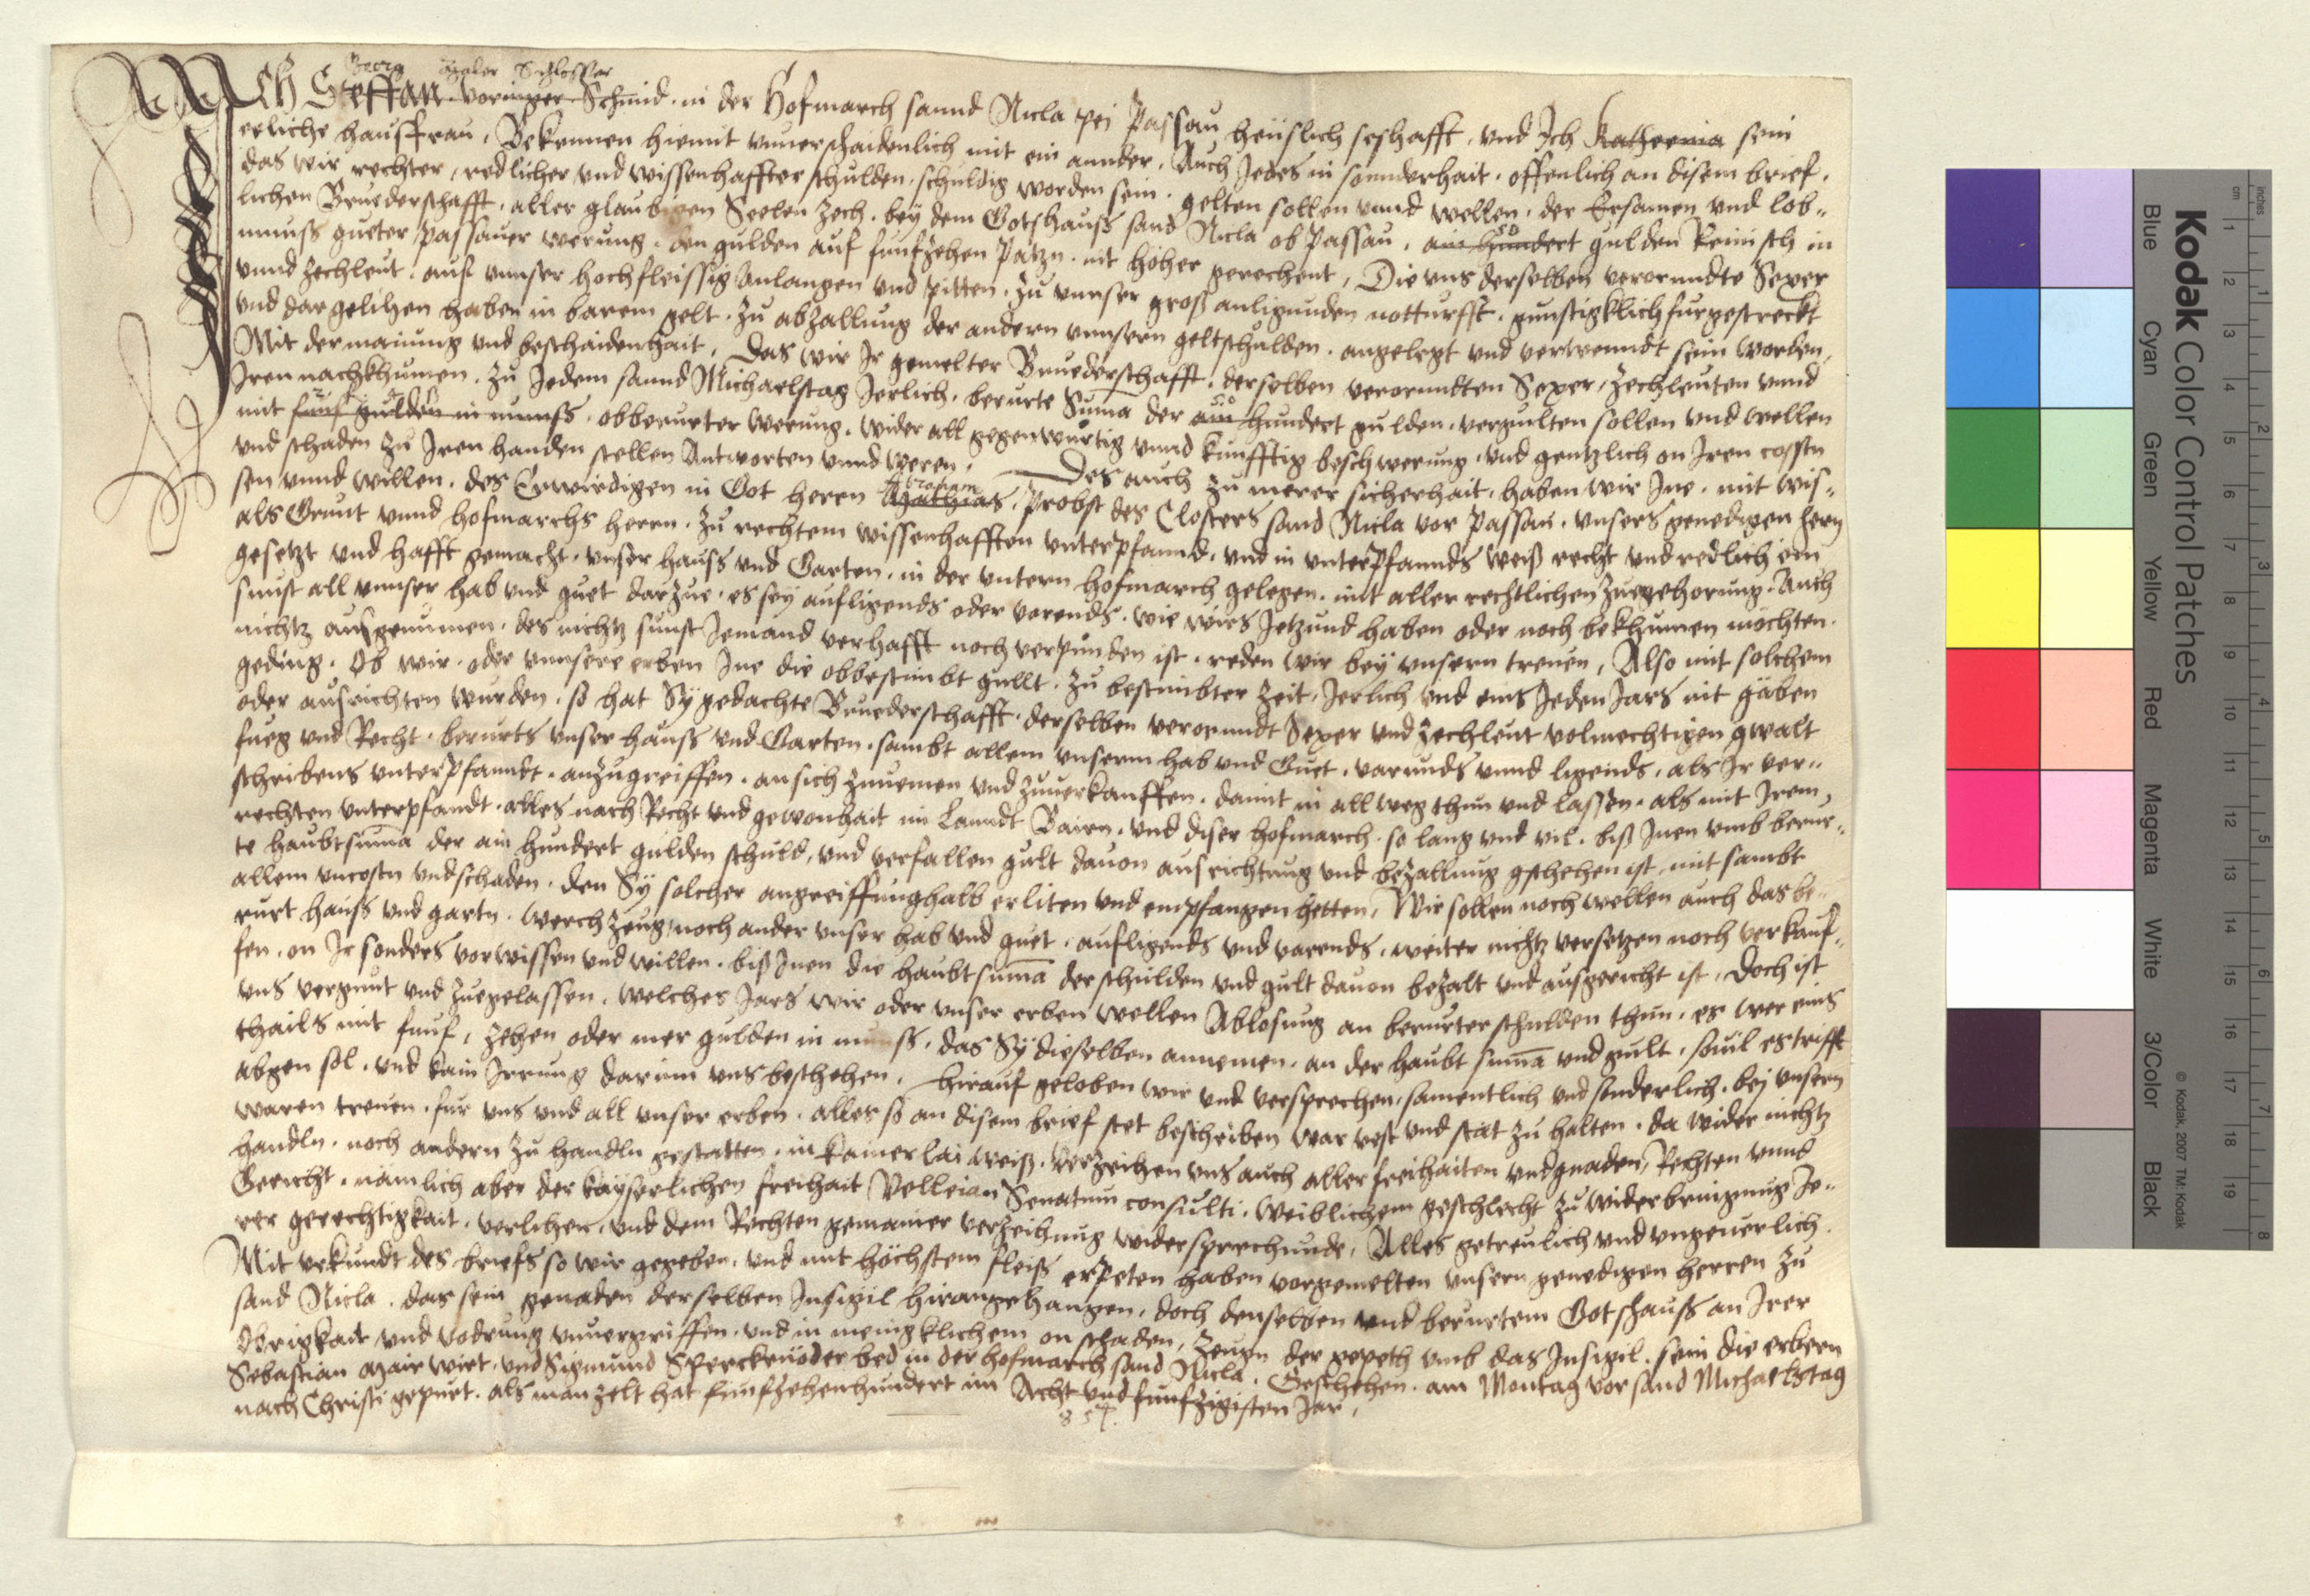 Georg maler Schlosser
Ich Steffan voringer Schmid. in der Hofmarch sannd Nicla pei Passau heuslich seshafft, vnd Ich Katherina sein
eeliche hausfrau, Bekennen hiemit vnuerschaidenlich mit ein annder. Auch Jedes in sonnderhait. offenlich an disem brief.
das wir rechter, redlicher vnd wissenhaffter schulden. schuldig worden sein. gelten sollen vnnd wellen. der Ersamen vnd lob-
lichen Bruederschafft. aller glaubigen Seelen Zech. bey dem Gotshauss sand Nicla ob Passau. ain hundert gulden Reinisch in
munss gueter passauer werung. den gulden auf funfzehen Patzn. nit hoher gerechent, Die vns derselben verornndte Sexer
vnnd Zechleut. auf vnnser hochfleissig anlangen vnd pitten. zu vnnser gross anligunden notturfft. gunstigklich furgestreckt
vnd dargelihen haben in barem gelt. zu abzallung der andern vnnsern geltschulden. angelegt vnd verwenndt sein worden,
Mit der mainung vnd beschaidenhait, Das wir Ir gemelter Bruederschafft. derselben verornndten Sexer, Zechleuten vnnd
Iren nachkhumen. zu Jedem sannd Michaelstag Jerlich. berurte Suma der ain hundert gulden. vergulten sollen vnd wellen
mit funf gulden in munss. obberurter werung. wider all gegenwurtig vnnd kunfftig beschwerung. vnd gentzlich on Iren costn
vnd schaden zu Iren handen stellen Antworten vnnd weren. Des auch zu merer sicherhait. haben wir Ine. mit wis-
sen vnnd willen. des Erwirdigen in Got herrn Mathias Abraham. Probst des Closters sand Nicla vor Passau. vnsers genedigen hern
als Grunt vnnd hofmarchs herrn. zu rechtem wissenhafften vnterpfannd. vnd in vnterpfannds weiß recht vnd redlich ein
gesetzt vnd hafft gemacht. vnser hauss vnd Garten. in der vntern hofmarch gelegen. mit aller rechtlichen zuegehorung. Auch
sunst all vnnser hab vnd guet darzue. es sey aufligends oder varends. wie wirs Jetzund haben oder noch bekhumen mochten.
nichtz ausgenumen. des nichtz sunst Jemand verhafft noch verpunden ist. reden wir bey vnsern treuen, Also mit solchem
geding. Ob wir. oder vnnsere erben Ine die obbestimbt gullt. zu bestimbter zeit. Jerlich vnd eins Jeden Jars nit gäben
oder ausrichten wurden. so hat Sy gedachte Bruederschafft. derselben verornndt Sexer vnd Zechleut volmechtigen gwalt
fueg vnd Recht. berurts vnser hauss vnd Garten. sambt allem vnserm hab vnd Guet. varunds vnnd ligends. als Ir ver-
schribens vnterpfanndt. anzugreiffen. an sich zunemen vnd zuuerkauffen. damit in all weg thun vnd lassen. als mit Irem
rechten vnterpfandt. alles nach Recht vnd gewonhait im Lanndt Bairn. vnd diser hofmarch. so lang vnd vil. biß Inen vmb berur-
te haubtsuma der ain hundert gulden schuld, vnd verfallen gult dauon ausrichtung vnd bezallung gschehen ist. mit sambt
allem vncostn vnd schaden. den Sy solcher angreiffung halb erliten vnd empfangen hetten, Wir sollen noch wellen auch das be-
rurt hauss vnd gartn. werchzeug, noch ander vnser hab vnd guet. aufligends vnd varends. weiter nichtz versetzen noch verkauf-
fen. on Ir sonders vorwissen vnd willen. biß Inen die haubtsuma der schulden vnd gult dauon bezalt vnd ausgericht ist, Doch ist
vns vergunt vnd zuegelassen. welches Jars wir oder vnser erben wellen Ablosung an berurter schulden thun. es wer eins
thails mit funf, zehen oder mer gulden in munss. das Sy dieselben annemen. an der haubt suma vnd gult. souil es trifft
abgen sol. vnd kain Irrung darinn vns beschehen. Hirauf geloben wir vnd versprechen. samentlich vnd sonderlich. bej vnsern
waren treuen. fur vns vnd all vnser erben. alles so an disem brief stet beschriben war vest vnd stät zu halten. da wider nichtz
handln. noch andern zu handln gestatten. in kainerlai weiß. Verzeihen vns auch aller freihaiten vnd gnaden, Rechten vnnd
Gericht. nämlich aber der kayserlichen freihait Velleian Senatum consulti. weiblichem geschlecht zu widerbringnug Je-
rer gerechtigkait. verlichen. vnd dem Rechten gemainer verzeihnug widersprechunde, Alles getreulich vnd vngeuerlich.
Mit vrkundt des briefs so wir gegeben. vnd mit höchstem fleiß erpeten haben vorgemelten vnsern genedigen herren zu
sand Nicla. das sein genaden derselben Insigil hirangehangen. doch denselben vnd berurtem Gotshauss an Irer
Obrigkait vnd vodrung vnuergriffen. vnd in menigklichem on schaden, Zeugn der gepeth vmb das Insigil. sein die erbern
Sebastian mair wirt. vnd Sigmund Sperckenöder bed in der hofmarch sand Nicla. Geschehen. am Montag vor sand Michaelstag
nach Christi gepurt. als man zelt hat funfzehenhundert im Acht vnd funfzigisten Jar,